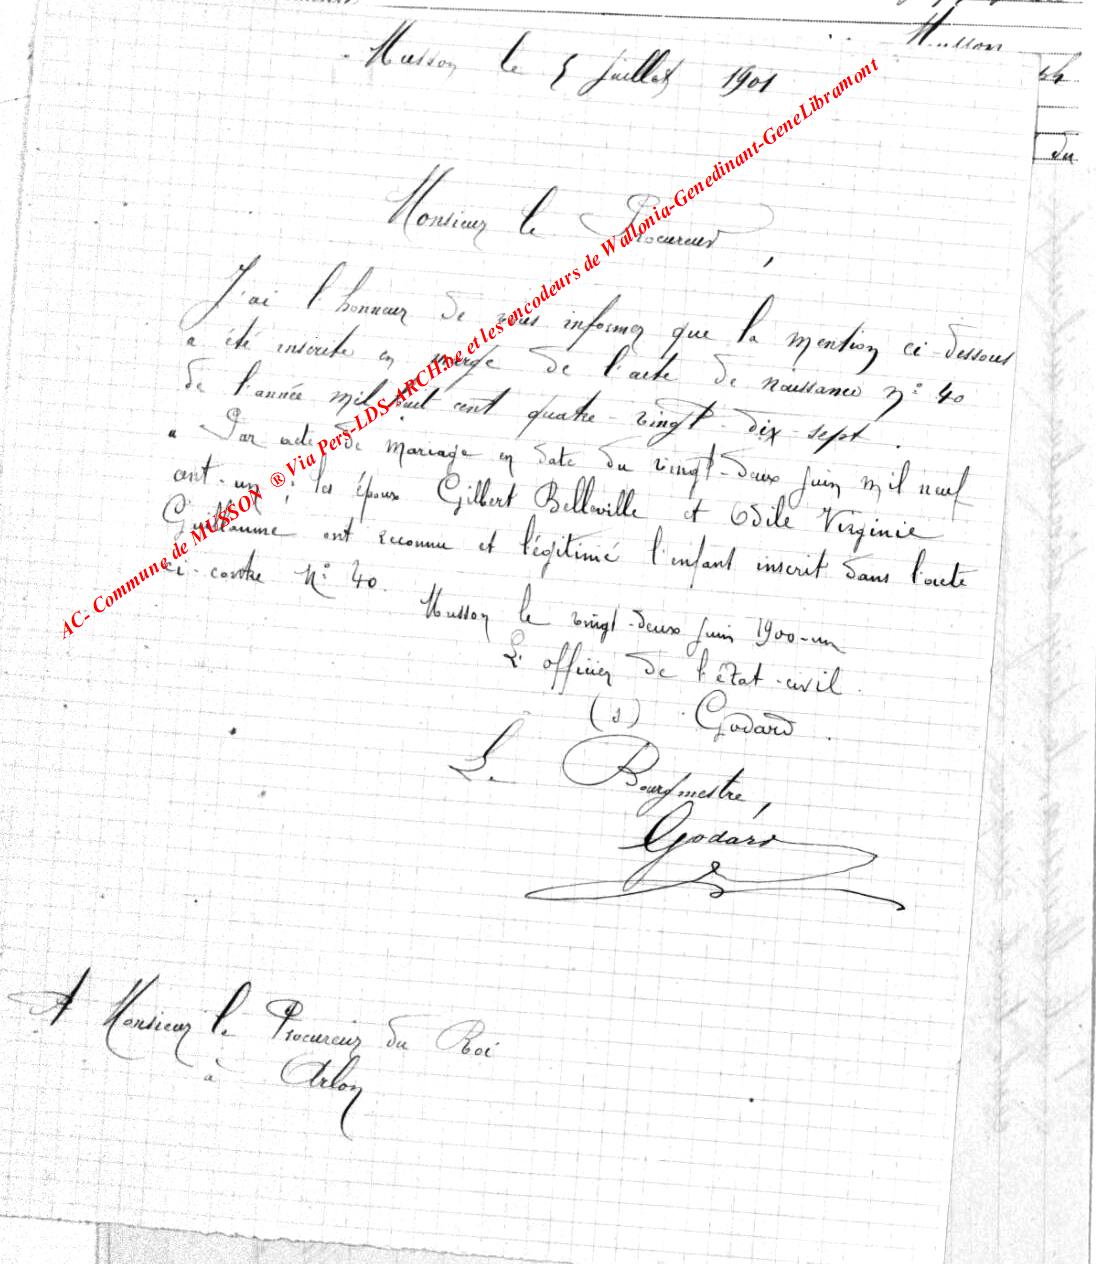 Musson
Musson le 5 juillet 1901
du
Monsieur le Procureur,
J'ai l'honneur de vous informer que la mention ci-dessous
a été inscrite en marge de l'acte de naissance n° 40
de l'année mil huit cent quatre-vingt-dix-sept.
"Par acte de mariage en date du vingt-deux juin mil neuf
cent-un, les époux Gilbert Belleville et Odile Virginie
Guillaume ont reconnu et légitimé l'enfant inscrit dans l'acte
ci-contre N° 40.
Musson le vingt-deux juin 1900-un
L'officier de l'état-civil.
(s) Godard.
Le Bourgmestre,
Godard
A Monsieur le Procureur du Roi
à Arlon
AC- Commune de MUSSON ® Via Pers-LDS-ARCH.be et les encodeurs de Wallonia-Genedinant-GeneLibramont